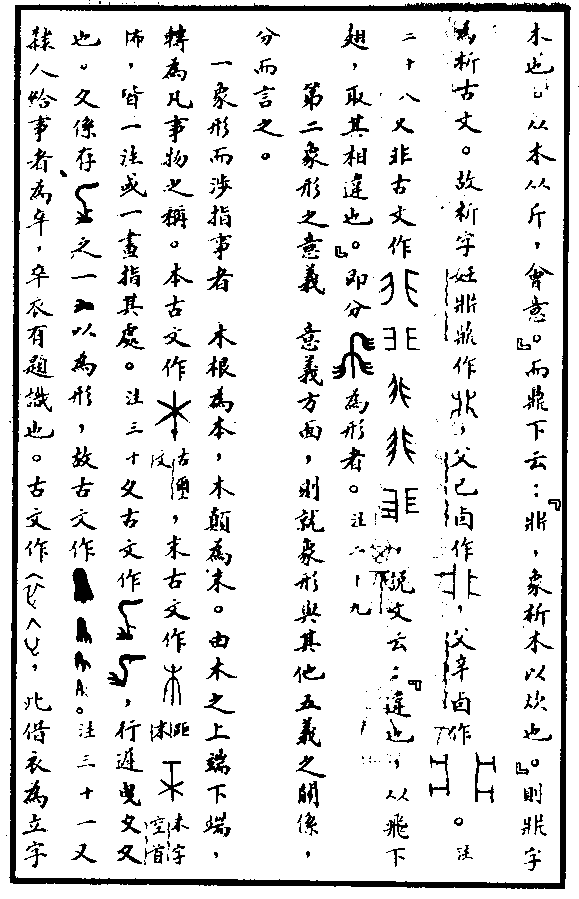 木也。从木从斤，會意。』而鼎下云：『鼎，象析木以炊也。』則鼎字
為析古文。故析字妊鼎鼎作，父己卣作，父辛卣作。注
二十八又非古文作，說文云：『違也，从飛下
翅，取其相違也。』即分為形者。注
第二象形之意義　意義方面，則就象形與其他五義之關係，
分而言之。
一象形而涉指事者　木根為本，木顛為末。由木之上端下端，
轉為凡事物之稱。本古文作古璽文，末古文作距末末字空首
布，皆一注或一畫指其處。注三十夂古文作，行遲曳夂夂
也。夂係存止之一以為形，故古文作。注三十一又
隸人給事者為卒，卒衣有題識也。古文作，此借衣為立字